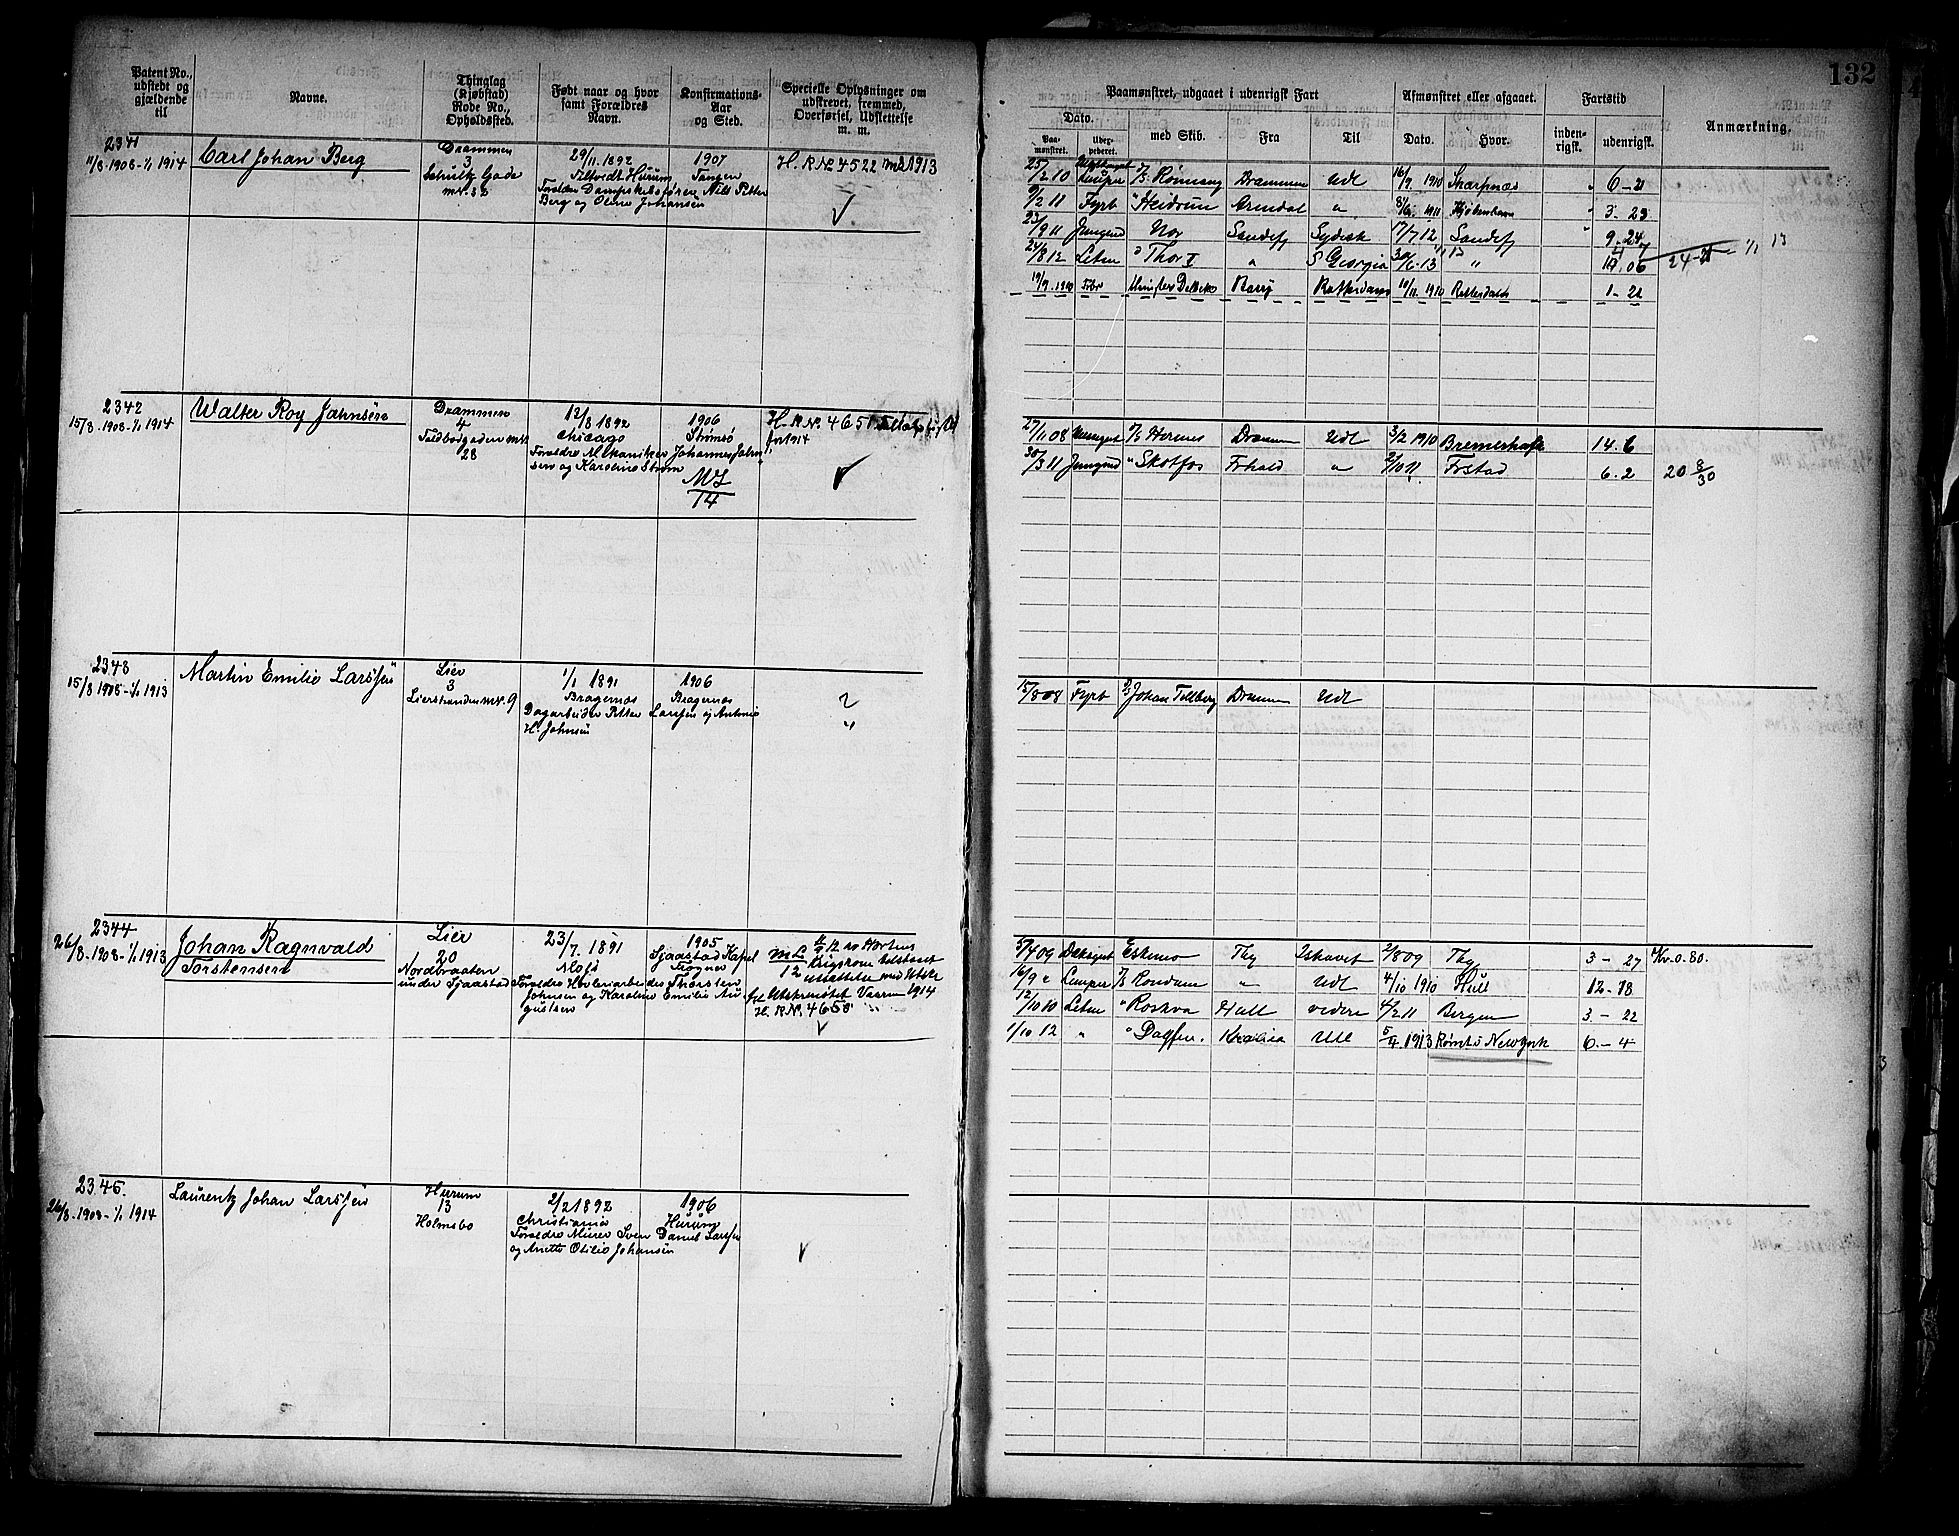 132
Patent No., udstedt og gjældende til
Navne.
Thinglag (Kjøbstad) Rode No., Opholdssted.
Født naar og hvor samt Forældres Navn.
Konfirmations-Aar og Sted.
Specielle Oplysninger om udskrevet, fremmed, Overførsel, Udslettelse m. m.
Paamønstret, udgaaet i udenrigsk Fart
Afmønstret eller afgaaet.
Fartstid
Anmærkning.
Dato.
Paamønstret.
med Skib.
Fra
Til
Dato.
Hvor.
indenrigsk.
udenrigsk.
2341
11/8 1908 - 1/1 1914
Carl Johan Berg
Drammen
3
Schultz Gade
nr. 32
29/11 1892
Tiltvedt Hurum
Forældre Dampskibsfører Nils Petter
Berg og Oline Johansen
1907
Tangen
H. R. No 4522 1913
25/2 10 Lemper Rønnaug Drammen Udl 16/9 1910 Skarpnæs 6-21
9/2 11 Fyrb " Heidrun Arendal " 1911 Kjøbenhavn 3-23
23/9 11 Jungmd Nor Sandefj Sydish 17/7 12 Sandefj 9-24
24/8 12 Letm " Thor I " S Georgia 30/6 13 "
19/9 1910 Minister Delbeke Barry Rotterdam 10/11 1910 1-21
2342
15/8 1908 - 1/1 1914
Walter Roy Jahnsen
Drammen
4
28
13/8 1892
Chicago
Forældre Mekaniker Johannes Jahn-
sen og Karoline Strøm
1906
Strømsø
ML
14
H. R. No. 4651
for 1914
27/11 08 Hermes Drammen Udl 3/2 1910 Bremerhafen 14-6
30/3 11 Jungmd " Skotfos Frhald " 2/10 11 Frstad 6-2
20 8/30
2343
15/8 1908 - 1/1 1913
Martin Emilio Larssen
Lier
3
Lierstranden nr. 9
1/1 1891
Bragernæs
Dagarbeider Petter Larssen og Antonie
H. Johnsen
1906
Bragernæs
15/8 08 Fyrb Johan Tillberg Drammen Udl
2344
26/8 1908 - 1/1 1913
Johan Ragnvald
Torstensen
Lier
20
Nordbraaten
under Sjaastad
23/7 1891
Moss
Forældre Høvleriarbeider Thorsten
Johnsen og Karoline Emilie Au-
gustsen
1905
Sjaastad Kapel
Frogner
Utskrevet Vaaren 1914
H. R No. 4658
5/4 09 Dæksgut Eskimo Tbg Ishavet 2/8 09 Tbg 3-27 Kr. 0.80.
16/9 " Lemper Rondane " Udl 4/10 1910 Hull 12-18
12/10 10 Letm " Roskva Hull videre 4/2 11 Bergen 3-22
1/10 12 " " Dagfin. Udl 5/4 1913 Rømt i New York 6-4
2345.
26/8 1908 - 1/1 1914
Laurentz Johan Larssen
Hurum
13
Holmsbo
2/2 1892
Christiania
Forældre Murer Sven Daniel Larssen
og Anette Otilie Johansen
1906
Hurum